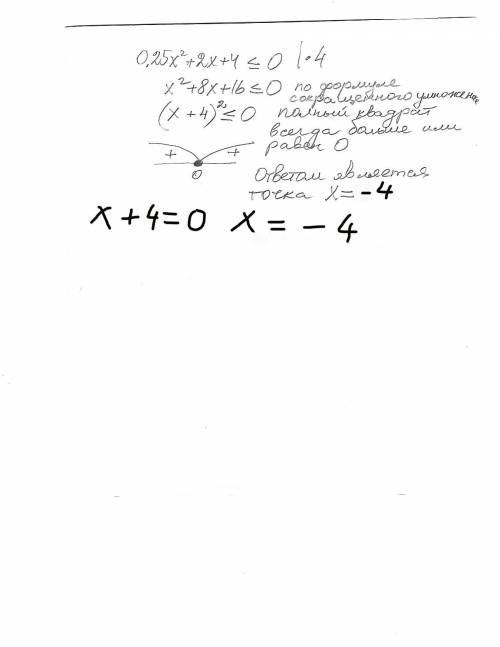 0,25x²+2x+4 ≤ 0 |·4
x²+8x+16 ≤ 0 по формуле
сокращенного умножения
(x+4)² ≤ 0 полный квадрат
всегда больше или
равен 0
+ +
0
Ответом является
точка x= -4
x+4=0 x = -4